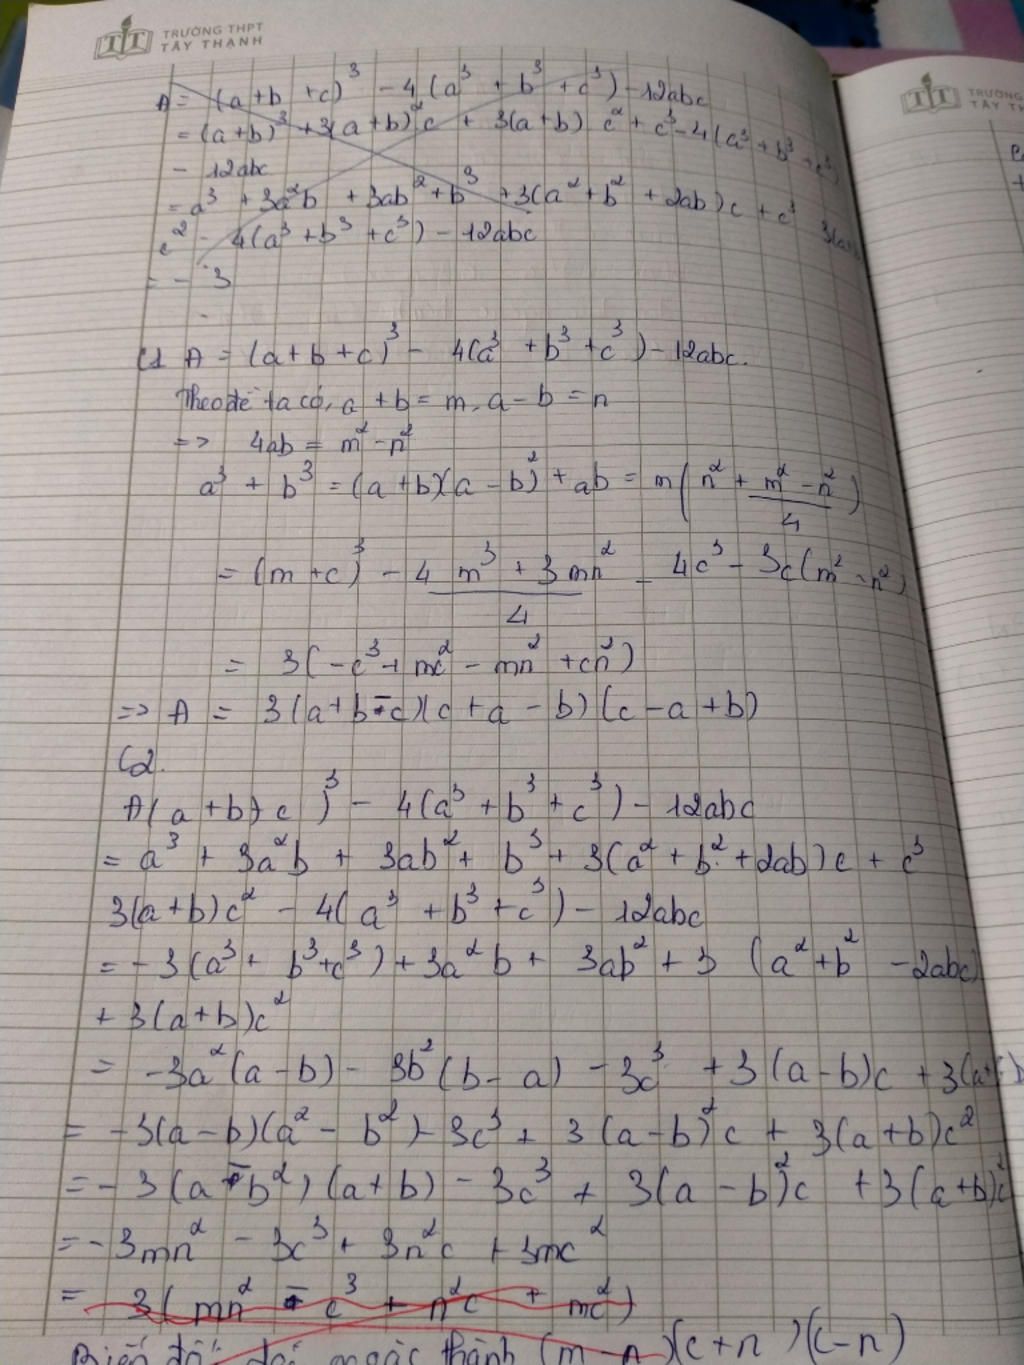 TRƯỜNG THPT
TÂY THẠNH
TRƯỜNG
TÂY TH
A = (a+b+c)³ - 4(a³ + b³ + c³) - 12abc
= (a+b)³ + 3(a+b)²c + 3(a+b) c² + c³ - 4(a³ + b³ + c³)
- 12abc
= a³ + 3a²b + 3ab² + b³ + 3(a² + b² + 2ab)c + c³ 3(a+b)
c² - 4(a³ + b³ + c³) - 12abc
= - 3
C1 A = (a+b+c)³ - 4(a³ + b³ + c³) - 12abc.
Theo đề ta có, a + b = m, a - b = n
=> 4ab = m² - n²
a³ + b³ = (a+b)(a-b)² + ab = m(n² + (m² - n²)/4)
= (m+c)³ - 4 (m³ + 3mn²)/4 - 4c³ - 3c(m² - n²)
= 3(-c³ + mc² - mn² + cn²)
=> A = 3(a+b-c)(c+a-b)(c-a+b)
C2.
A(a+b+c)³ - 4(a³ + b³ + c³) - 12abc
= a³ + 3a²b + 3ab² + b³ + 3(a² + b² + 2ab)c + c³
3(a+b)c² - 4(a³ + b³ + c³) - 12abc
= -3(a³ + b³ + c³) + 3a²b + 3ab² + 3 (a² + b² - 2abc)
+ 3(a+b)c²
= -3a²(a-b) - 3b²(b-a) - 3c³ + 3(a-b)c + 3(a+b
= -3(a-b)(a² - b²) - 3c³ + 3(a-b)²c + 3(a+b)c²
= -3(a-b²)(a+b) - 3c³ + 3(a-b)²c + 3(a+b)c²
= -3mn² - 3c³ + 3n²c + 3mc²
= 3(mn² - c³ + n²c + mc²)
Biến đổi ngoặc thành (m-n)(c+n)(c-n)